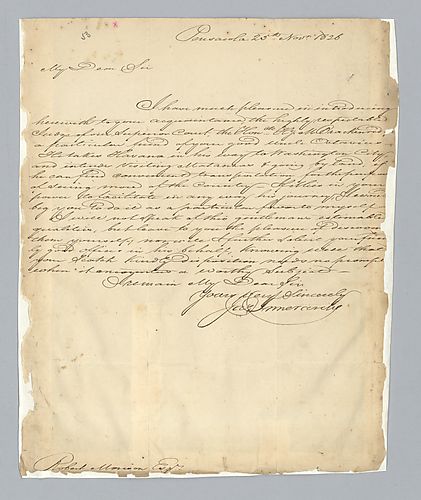 53
Pensacola 25th Novr 1826
My Dear Sir
I have much pleasure in introducing
herewith to your acquaintance the highly respectable
Judge of our Superior Court the Honble
a particular friend of your good uncle
He takes Havana in his way to Washington City
and intends visiting Matanzas going by land if
he can find convenient transportation for the purpose
of seeing more of the Country. If it lies in your
power to facilitate in any way his journey, I
beg you to do so as a particular favor to myself.
I will not speak of this gentleman's estimable
qualities, but leave to you the pleasure of discovering
them yourself, nor will I further solicit your
good offices in his behalf, knowing as I do that
your kindly disposition needs no prompter
when it a worthy subject
I remain My Dear Sir
Yours Very Sincerely
Robert Esqr